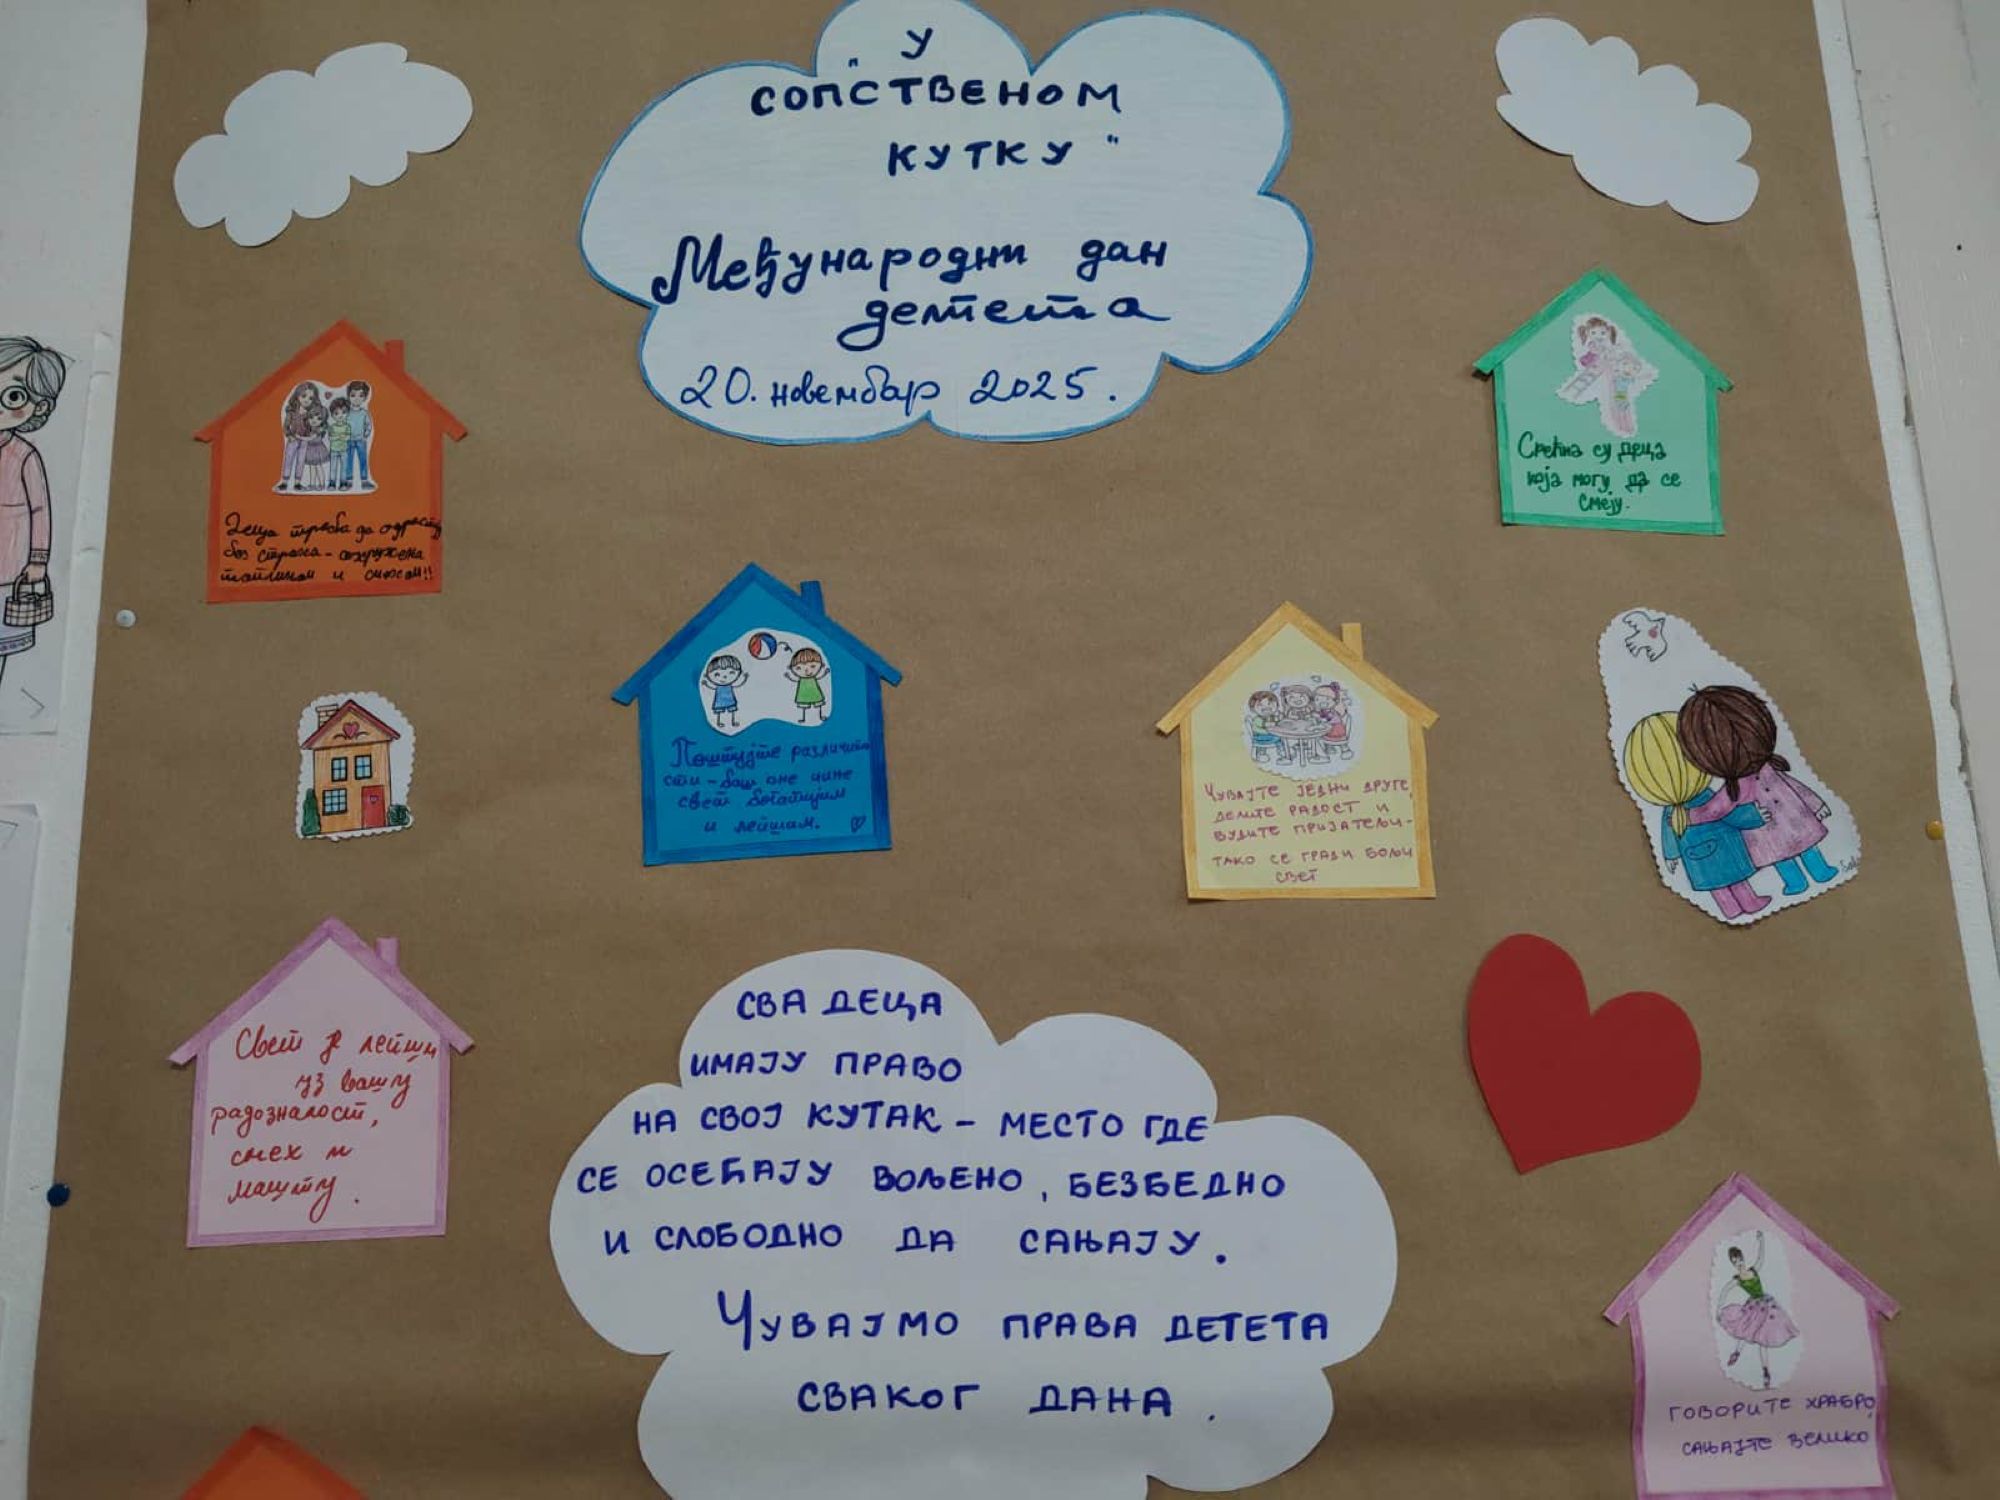 "У
СОПСТВЕНОМ
КУТКУ"
Међународни дан
детета
20. новембар 2025.
Деца треба да одрастају
без страха - окружена
топлином и смехом!!
Срећна су деца
која могу да се
смеју.
Поштујте различито
сти - баш оне чине
свет богатијим
и лепшим.
ЧУВАЈТЕ ЈЕДНИ ДРУГЕ,
ДЕЛИТЕ РАДОСТ И
БУДИТЕ ПРИЈАТЕЉИ -
ТАКО СЕ ГРАДИ БОЉИ
СВЕТ
Свет је лепши
уз вашу
радозналост,
смех и
машту.
СВА ДЕЦА
ИМАЈУ ПРАВО
НА СВОЈ КУТАК - МЕСТО ГДЕ
СЕ ОСЕЋАЈУ ВОЉЕНО, БЕЗБЕДНО
И СЛОБОДНО ДА САЊАЈУ.
ЧУВАЈМО ПРАВА ДЕТЕТА
СВАКОГ ДАНА.
ГОВОРИТЕ ХРАБРО,
САЊАЈТЕ ВЕЛИКО